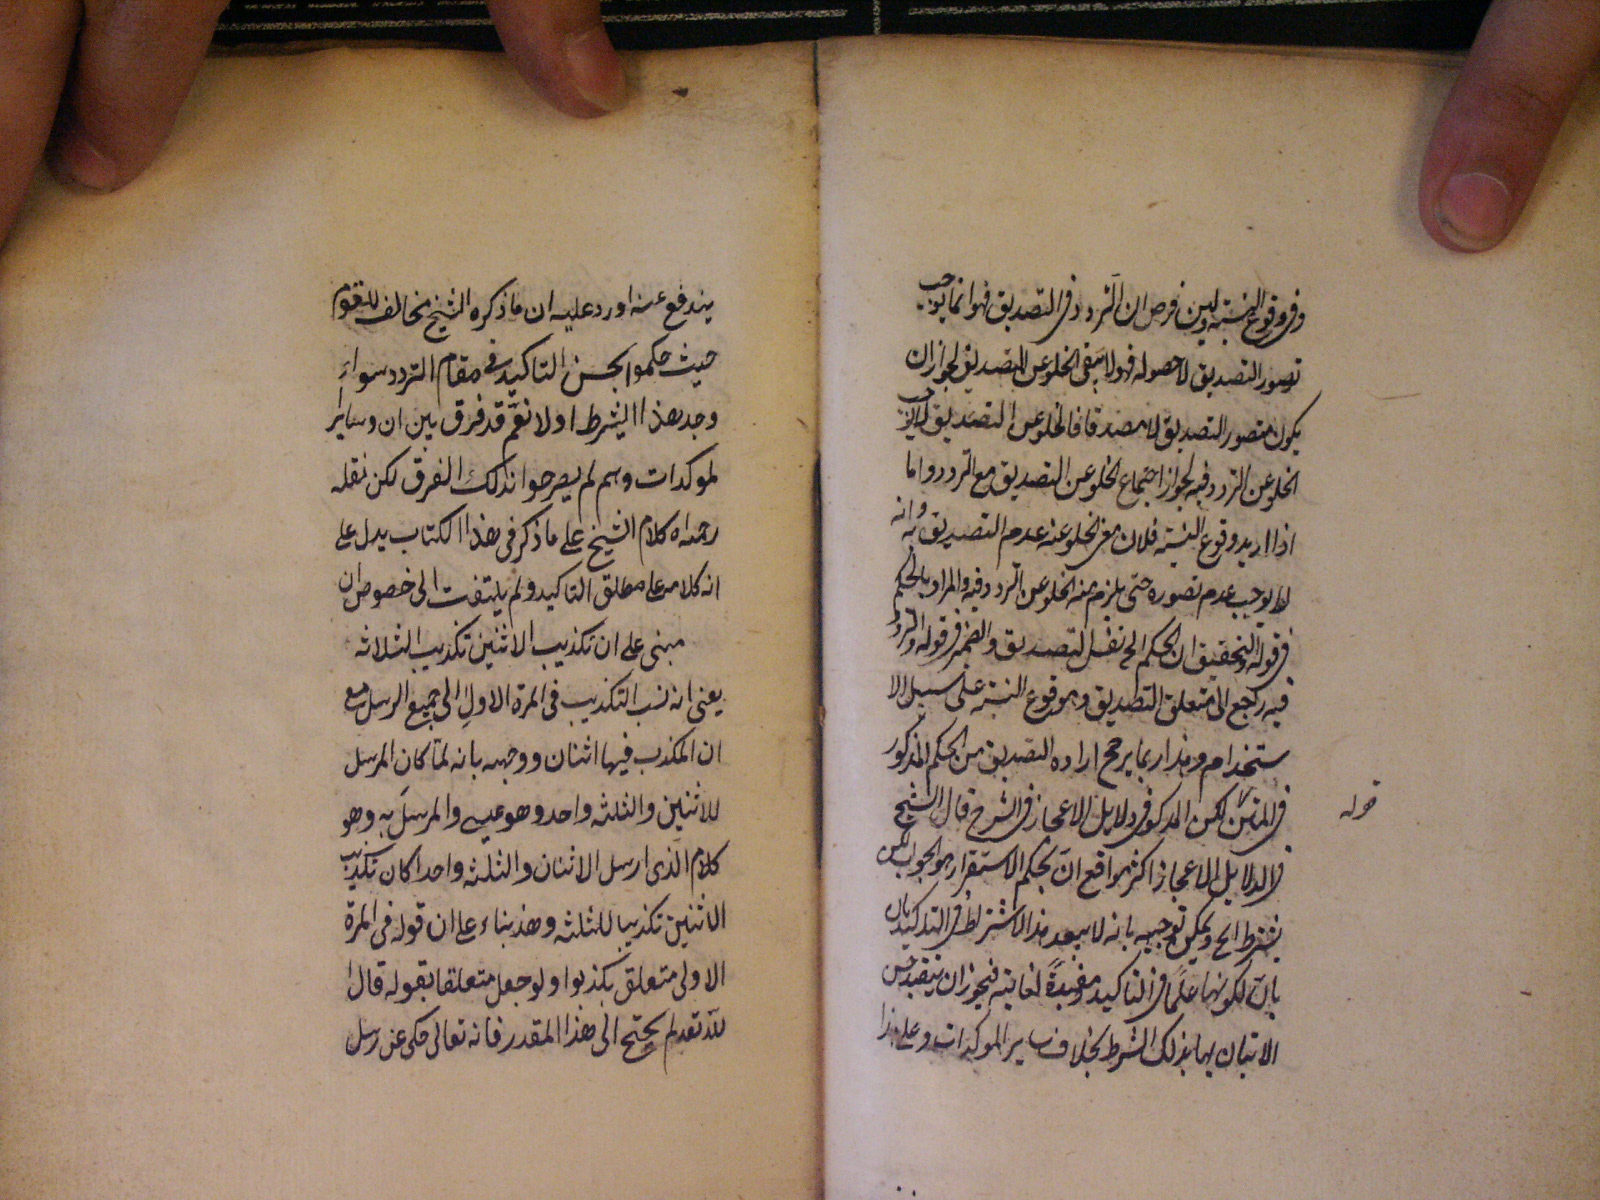 وفى وقوع النسبة ولئن فرض ان التردد فى التصديق فهو انما يوجب
تصور التصديق لا حصوله فهو لا ينفى الخلو عن التصديق لجواز ان
يكون متصور التصديق لا مصدقا فالخلو عن التصديق لا يوجب
الخلو عن التردد فيه لجواز اجتماع الخلو عن التصديق مع التردد واما
اذا اريد وقوع النسبة فلان معنى الخلو عنه عدم التصديق به وانه
لا يوجب عدم تصوره حتى يلزم منه الخلو عن التردد فيه والمراد بالحكم
فى قوله والتحقيق ان الحكم الخ نفس التصديق والضمير فى قوله والتردد
فيه راجع الى متعلق التصديق وهو وقوع النسبة على سبيل الا
ستخدام وهذا ربما يرجح ارادة التصديق من الحكم المذكور
فى المتن لكن المذكور فى دلايل الاعجاز فى الشرح قال الشيخ
قوله
فى دلايل الاعجاز اكثر مواقع ان بحكم الاستقرار هو الجواب لكن
يشترط الخ ويمكن توجيهه بانه لا يبعد هذا الاشتراط فى التاكيد بان
بان لكونها علما فى التاكيد ومفيدة لغايته فيجوز ان يتقيد حسن
الاتيان بها بذلك الشرط بخلاف ساير الموكدات وعلى هذا
يندفع عنه اورد عليه ان ما ذكره الشيخ مخالف للقوم
حيث حكموا بحسن التاكيد فى مقام التردد سواء
وجد هذا الشرط او لا نعم قد فرق بين ان وساير
لموكدات وهم لم يصرحوا بذلك الفرق لكن نقله
رحمه اه كلام الشيخ على ما ذكر فى هذا الكتاب يدل على
انه كلامه على مطلق التاكيد ولم يلتفت الى خصوص ان
مبنى على ان تكذيب الاثنين تكذيب الثلاثة
يعنى انه نسب التكذيب فى المرة الاولى الى جميع الرسل مع
ان المكذب فيها اثنان ووجهه بانه لما كان المرسل
للاثنين والثلثه واحد وهو عيسى والمرسل به وهو
كلام الذى ارسل الاثنان والثلثه واحدا كان تكذيب
الاثنين تكذيبا للثلثه وهذ بناء على ان قوله فى المرة
الاولى متعلق بكذبوا ولو جعل متعلقا بقوله قال
لله تعه لم يحتج الى هذا المقدر فانه تعالى حكى عن رسل